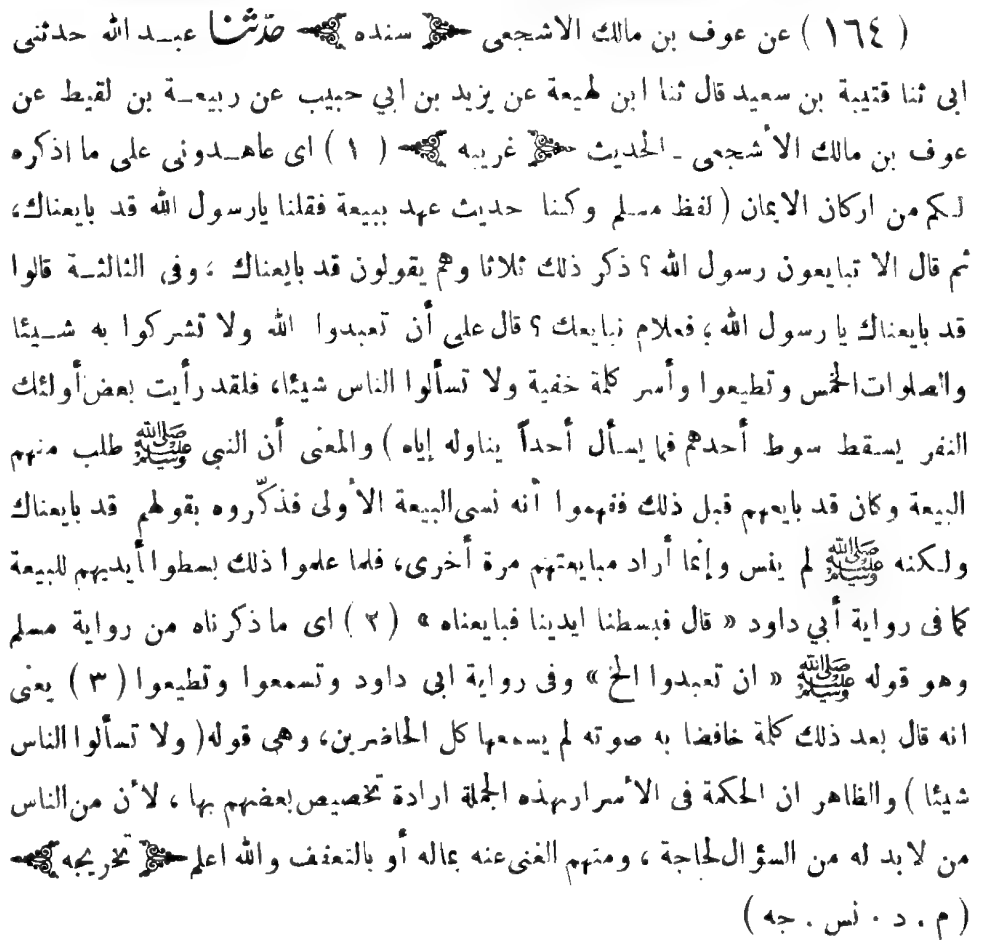 ( ١٦٤ ) عن عوف بن مالك الاشجعى ﴿ سنده ﴾ حدّثنا عبـد الله حدثنى
ابى ثنا قتيبة بن سعيد قال ثنا ابن لهيعة عن يزيد بن ابي حبيب عن ربيعـة بن لقيط عن
عوف بن مالك الأشجعى ـ الحديث ﴿ غريبه ﴾ ( ١ ) اى عاهـدونى على ما اذكره
لـكم من اركان الايمان ( لفظ مسـلم وكـنا حديث عهد ببيعة فقلنا يارسول الله قد بايعناك،
ثم قال الا تبايعون رسول الله ؟ ذكر ذلك ثلاثا وهم يقولون قد بايعناك ، وفى الثالثـة قالوا
قد بايعناك يا رسول الله ؛ فعلام نبايعك ؟ قال على أن تعبدوا الله ولا تشركوا به شـيئا
والصلوات الخمس وتطيعوا وأسر كلمة خفية ولا تسألوا الناس شيئا، فلقد رأيت بعض أولئك
النفر يسـقط سوط أحدهم فما يسـأل أحداً يناوله إياه ) والمعنى أن النبي ﷺ طلب منهم
البيعة وكان قد بايعهم قبل ذلك ففهموا أنه نسى البيعة الأولى فذكّروه بقولهم قد بايعناك
ولـكنه ﷺ لم ينس وإنما أراد مبايعتهم مرة أخرى، فلما علموا ذلك بسطوا أيديهم للبيعة
كما فى رواية أبي داود « قال فبسطنا ايدينا فبايعناه » ( ٢ ) اى ماذكرناه من رواية مسلم
وهو قوله ﷺ « ان تعبدوا الخ » وفى رواية ابى داود وتسمعوا وتطيعوا ( ٣ ) يعنى
انه قال بعد ذلك كلمة خافضا به صوته لم يسمعها كل الحاضرين، وهى قوله( ولا تسألوا الناس
شيئا ) والظاهر ان الحكمة فى الأسرار بهذه الجملة ارادة تخصيص بعضهم بها ، لأن من الناس
من لابد له من السؤال لحاجة ، ومنهم الغنى عنه بماله أو بالتعفف والله اعلم ﴿ تخريجه ﴾
( م . د . نس . جه )